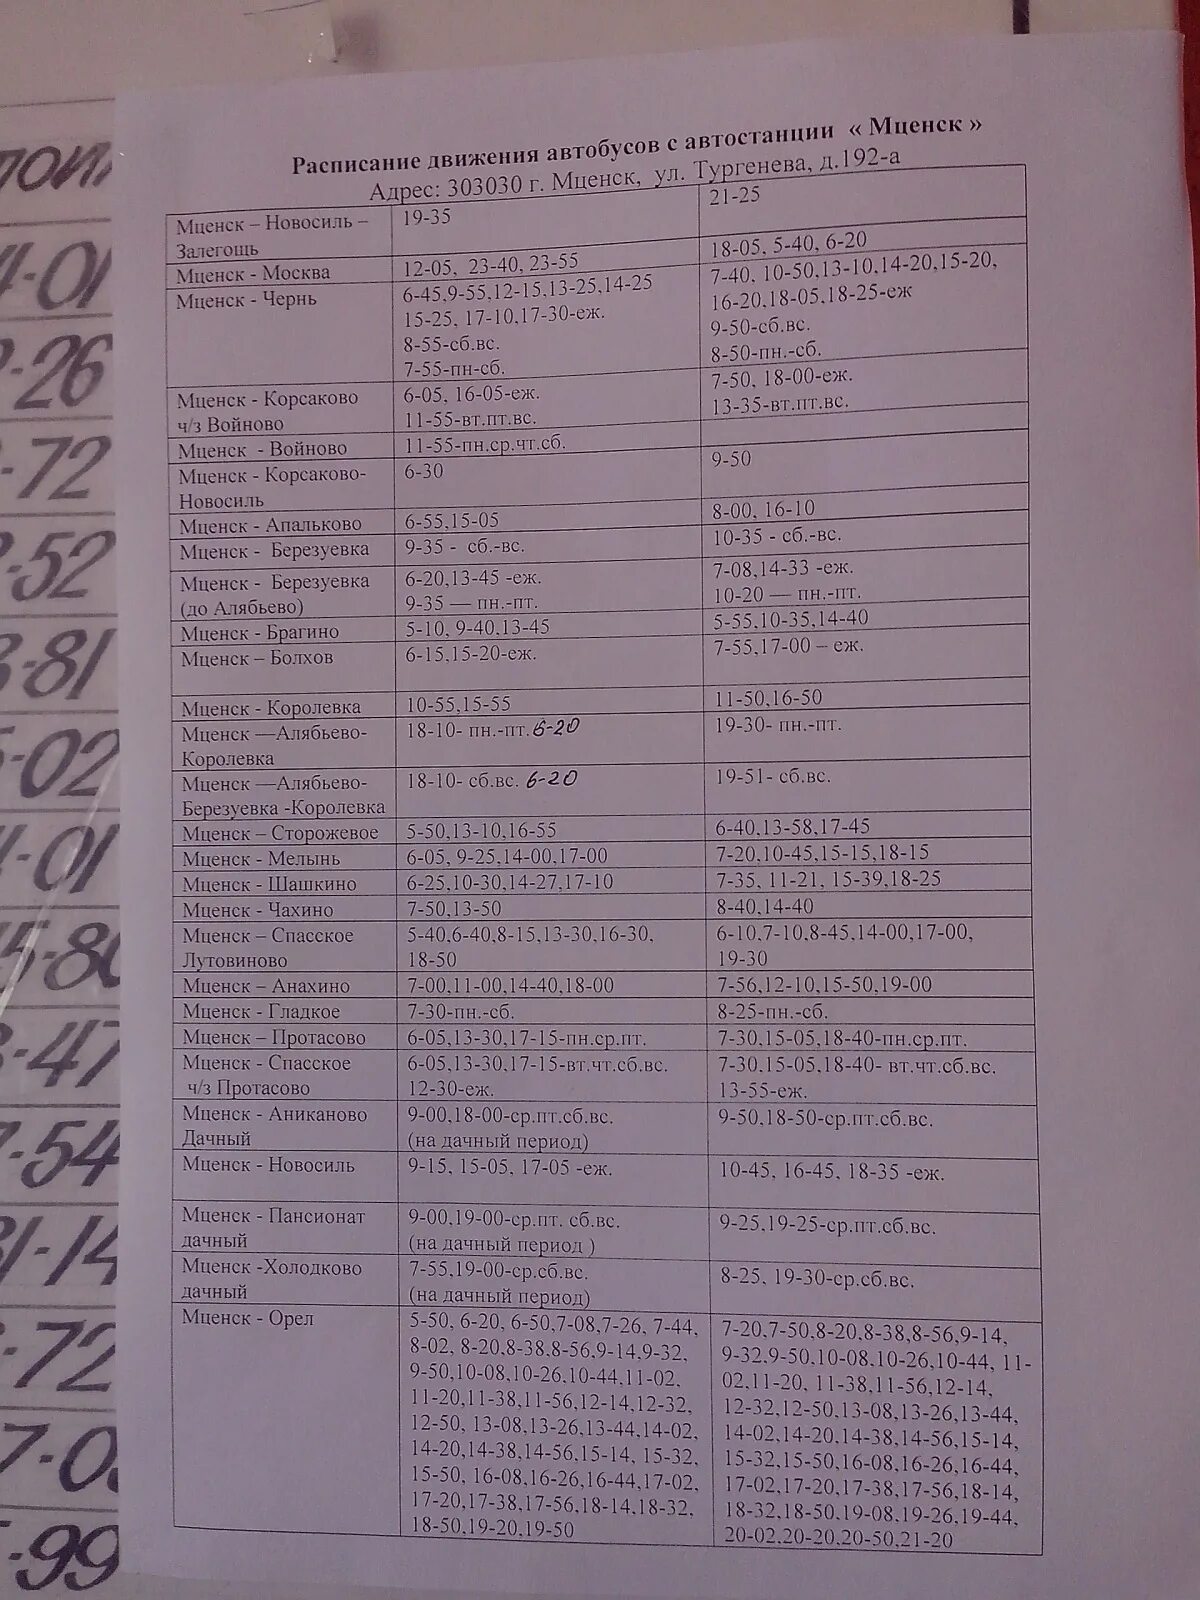 Расписание движения автобусов с автостанции « Мценск »
Адрес: 303030 г. Мценск, ул. Тургенева, д.192-а
Мценск – Новосиль – 19-35 21-25
Залегощь
Мценск - Москва 12-05, 23-40, 23-55 18-05, 5-40, 6-20
Мценск - Чернь 6-45,9-55,12-15,13-25,14-25 7-40, 10-50,13-10,14-20,15-20,
15-25, 17-10,17-30-еж. 16-20,18-05,18-25-еж
8-55-сб.вс. 9-50-сб.вс.
7-55-пн-сб. 8-50-пн.-сб.
Мценск - Корсаково 6-05, 16-05-еж. 7-50, 18-00-еж.
ч/з Войново 11-55-вт.пт.вс. 13-35-вт.пт.вс.
Мценск - Войново 11-55-пн.ср.чт.сб.
Мценск - Корсаково- 6-30 9-50
Новосиль
Мценск - Апальково 6-55,15-05 8-00, 16-10
Мценск - Березуевка 9-35 - сб.-вс. 10-35 - сб.-вс.
Мценск - Березуевка 6-20,13-45 -еж. 7-08,14-33 -еж.
(до Алябьево) 9-35 — пн.-пт. 10-20 — пн.-пт.
Мценск - Брагино 5-10, 9-40,13-45 5-55,10-35,14-40
Мценск – Болхов 6-15,15-20-еж. 7-55,17-00 – еж.
Мценск - Королевка 10-55,15-55 11-50,16-50
Мценск —Алябьево- 18-10- пн.-пт. 6-20 19-30- пн.-пт.
Королевка
Мценск —Алябьево- 18-10- сб.вс. 6-20 19-51- сб.вс.
Березуевка -Королевка
Мценск – Сторожевое 5-50,13-10,16-55 6-40,13-58,17-45
Мценск - Мелынь 6-05, 9-25,14-00,17-00 7-20,10-45,15-15,18-15
Мценск - Шашкино 6-25,10-30,14-27,17-10 7-35, 11-21, 15-39,18-25
Мценск - Чахино 7-50,13-50 8-40,14-40
Мценск – Спасское 5-40,6-40,8-15,13-30,16-30, 6-10,7-10,8-45,14-00,17-00,
Лутовиново 18-50 19-30
Мценск – Анахино 7-00,11-00,14-40,18-00 7-56,12-10,15-50,19-00
Мценск - Гладкое 7-30-пн.-сб. 8-25-пн.-сб.
Мценск – Протасово 6-05,13-30,17-15-пн.ср.пт. 7-30,15-05,18-40-пн.ср.пт.
Мценск - Спасское 6-05,13-30,17-15-вт.чт.сб.вс. 7-30,15-05,18-40- вт.чт.сб.вс.
ч/з Протасово 12-30-еж. 13-55-еж.
Мценск - Аниканово 9-00,18-00-ср.пт.сб.вс. 9-50,18-50-ср.пт.сб.вс.
Дачный (на дачный период)
Мценск - Новосиль 9-15, 15-05, 17-05 -еж. 10-45, 16-45, 18-35 -еж.
Мценск - Пансионат 9-00,19-00-ср.пт. сб.вс. 9-25,19-25-ср.пт.сб.вс.
дачный (на дачный период )
Мценск -Холодково 7-55,19-00-ср.сб.вс. 8-25, 19-30-ср.сб.вс.
дачный (на дачный период)
Мценск - Орел 5-50, 6-20, 6-50,7-08,7-26, 7-44, 7-20,7-50,8-20,8-38,8-56,9-14,
8-02, 8-20,8-38,8-56,9-14,9-32, 9-32,9-50,10-08,10-26,10-44, 11-
9-50,10-08,10-26,10-44,11-02, 02,11-20, 11-38,11-56,12-14,
11-20,11-38,11-56,12-14,12-32, 12-32,12-50,13-08,13-26,13-44,
12-50, 13-08,13-26,13-44,14-02, 14-02,14-20,14-38,14-56,15-14,
14-20,14-38,14-56,15-14, 15-32, 15-32,15-50,16-08,16-26,16-44,
15-50, 16-08,16-26,16-44,17-02, 17-02,17-20,17-38,17-56,18-14,
17-20,17-38,17-56,18-14,18-32, 18-32,18-50,19-08,19-26,19-44,
18-50,19-20,19-50 20-02,20-20,20-50,21-20
-01
-26
-72
-52
-81
-02
-01
-80
-47
-54
-14
-72
-99